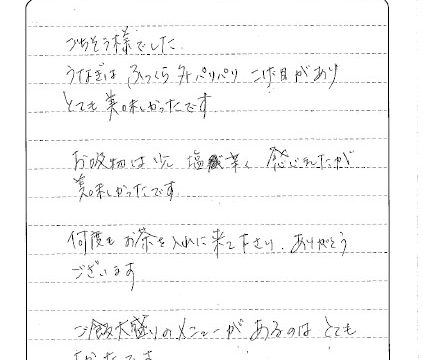 ごちそう様でした
うなぎは ふっくら 外パリパリ こげ目があり
とても 美味しかったです
お吸物は 少 塩 辛く 感じましたが
美味しかったです
何度も お茶を入れに来て下さり、ありがとう
ございます
ご飯大盛りのメニューが あるのは とても
かったです